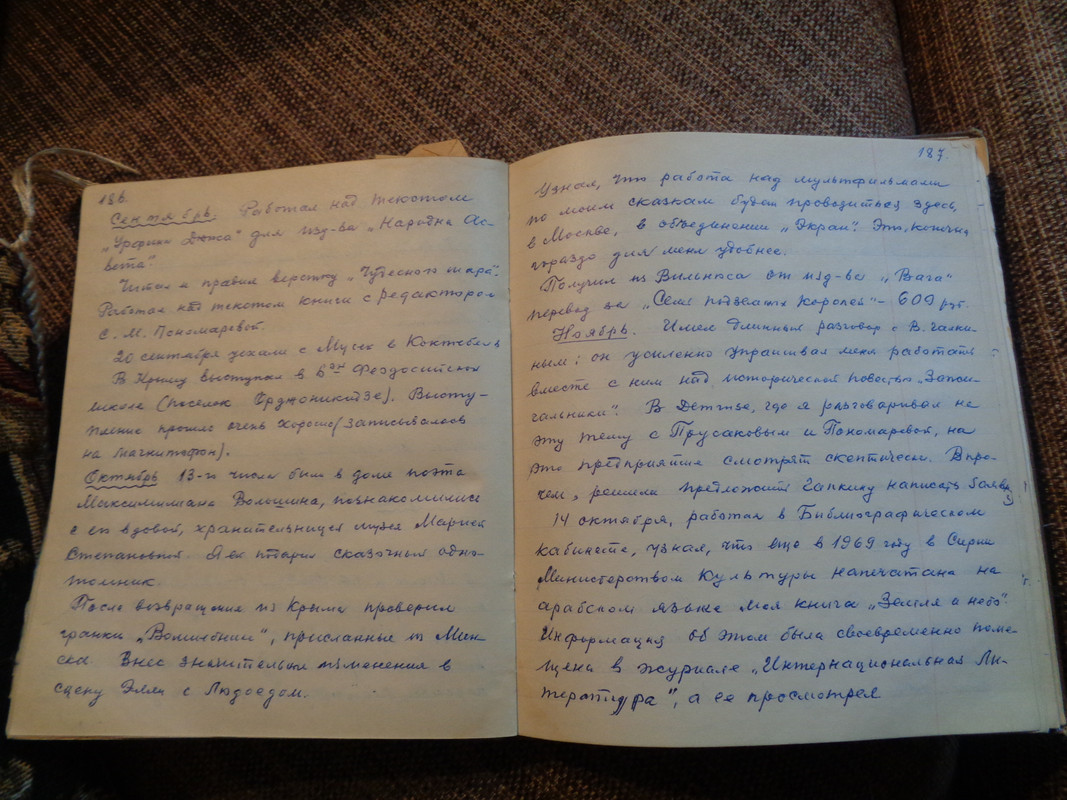 186
Сентябрь. Работал над текстом
„Урфина Джюса" для изд-ва „Народна Ас-
вета".
Читал и правил верстку „Чудесного шара".
Работал над текстом книги с редактором
С. М. Пономаревой.
20 сентября уехали с Мусей в Коктебель
В Крыму выступал в 6ой Феодосийской
школе (поселок Орджоникидзе). Высту-
пление прошло очень хорошо (записывалось
на магнитофон).
Октябрь 13-го числа был в доме поэта
Максимилиана Волошина, познакомился
с его вдовой, хранительницей музея Марией
Степановной. Я ей подарил сказочный одно-
томник.
После возвращения из Крыма проверил
гранки „Волшебника", присланные из Мин-
ска. Внес значительные изменения в
сцену Элли с Людоедом.
187
Узнал, что работа над мультфильмами
по моим сказкам будет проводиться здесь,
в Москве, в объединении „Экран". Это, конечно,
гораздо для меня удобнее.
Получил из Вильнюса от изд-ва „Вага"
перевод за „Семь подземных королей" – 609 руб.
Ноябрь. Имел длинный разговор с В. Галки-
ным: он усиленно упрашивал меня работать
вместе с ним над исторической повестью
В Детгизе, где я разговаривал на
эту тему с Прусаковым и Пономаревой, на
это предприятие смотрят скептически. Впро-
чем, решили предложить Галкину написать
14 октября, работая в Библиографическом
кабинете, узнал, что еще в 1969 году в Сирии
Министерством Культуры напечатана на
арабском языке моя книга „Земля и небо".
Информация об этом была своевременно поме-
щена в журнале „Интернациональная Ли-
тература", а ее просмотрел